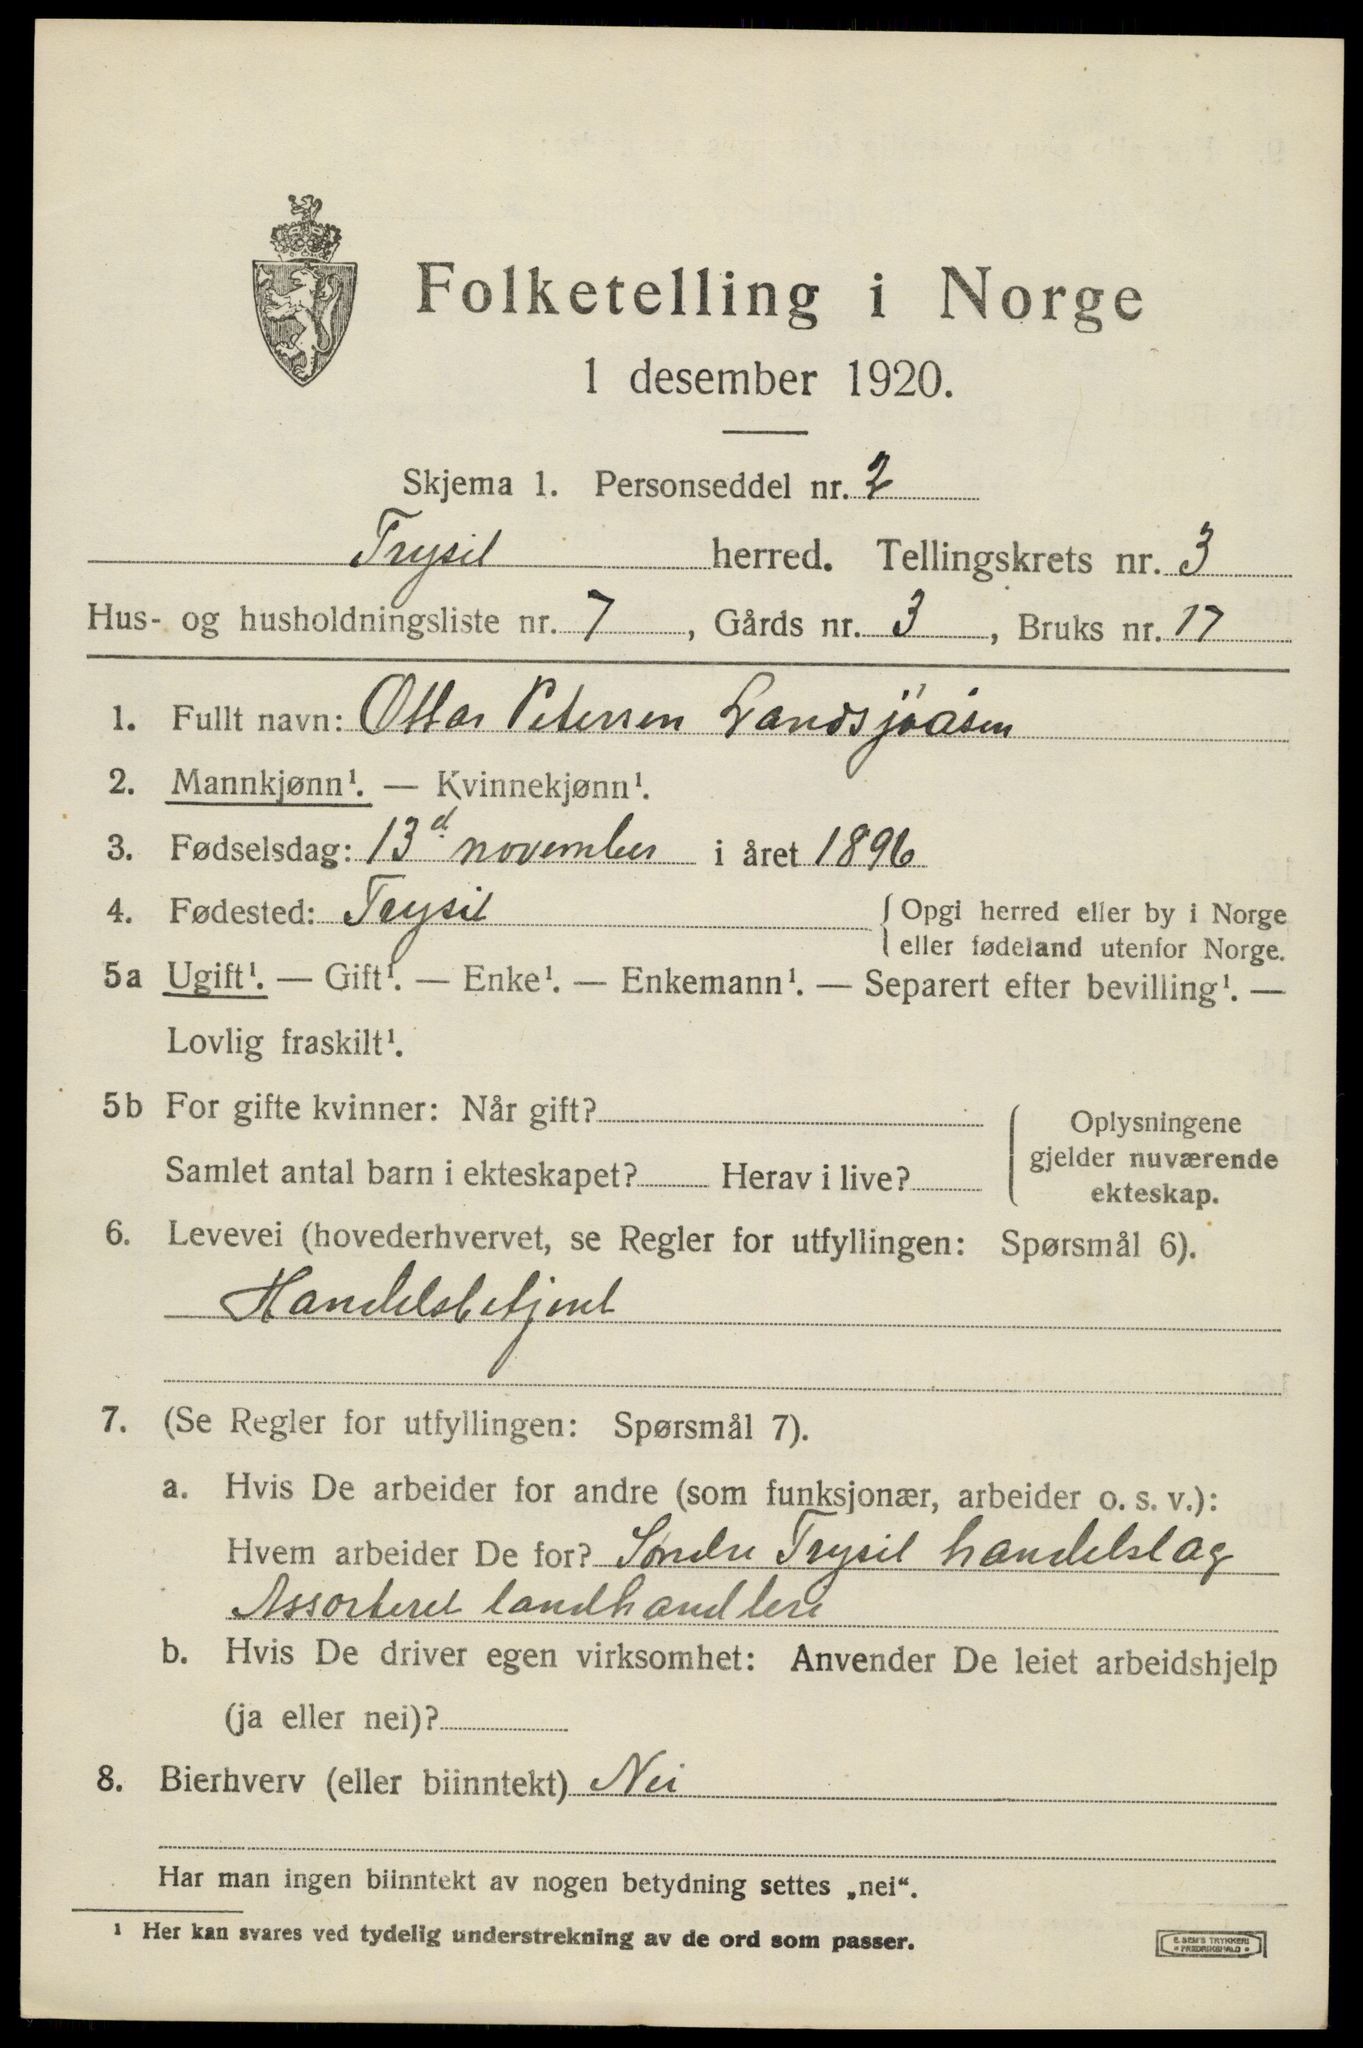 Folketelling i Norge
1 desember 1920.
Skjema 1. Personseddel nr. 2
Trysil herred. Tellingskrets nr. 3
Hus- og husholdningsliste nr. 7, Gårds nr. 3, Bruks nr. 17
1. Fullt navn: Ottar Petersen Landsjöåsen
2. Mannkjønn¹. — Kvinnekjønn¹.
3. Fødselsdag: 13d november i året 1896
4. Fødested: Trysil { Opgi herred eller by i Norge
eller fødeland utenfor Norge.
5a Ugift¹. — Gift¹. — Enke¹. — Enkemann¹. — Separert efter bevilling¹. —
Lovlig fraskilt¹.
5b For gifte kvinner: Når gift?
Samlet antal barn i ekteskapet? Herav i live?
Oplysningene
gjelder nuværende
ekteskap.
6. Levevei (hovederhvervet, se Regler for utfyllingen: Spørsmål 6).
Handelsbetjent
7. (Se Regler for utfyllingen: Spørsmål 7).
a. Hvis De arbeider for andre (som funksjonær, arbeider o. s. v.):
Hvem arbeider De for? Søndre Trysil handelslag
Assorteret landhandleri
b. Hvis De driver egen virksomhet: Anvender De leiet arbeidshjelp
(ja eller nei)?
8. Bierhverv (eller biinntekt) Nei
Har man ingen biinntekt av nogen betydning settes „nei“.
¹ Her kan svares ved tydelig understrekning av de ord som passer.
E. SEM'S TRYKKERI
FREDRIKSHALD